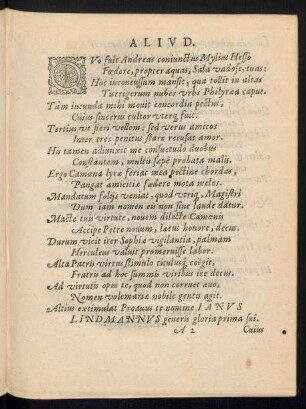 ALIVD.
QVo fuit Andreas coniunctus Mylius Hesso
Fœdere, propter aquas, Sala vadose, tuas:
Hoc inconcussum mansit, qua tollit in altas
Turrigerum nubes vrbs Philyræa caput.
Tàm iucunda mihi mouit concordia pectus,
Cuius sincerus cultor vterq; fuit.
Tertius vt fieri vellem; sed verus amicos
Inter tres penitus stare recusat amor.
His tamen adiunxit me consuetudo duobus
Constantem, multis sæpè probata malis.
Ergo Camæna lyræ feriat mea pectine chordas,
Pangat amicitiæ fœdere mota melos.
Mandatum solijs veniat, quod vtriq; Magistri
Dum iam nomen eu non sine laude datur.
Macte tuis virtute, nouem dilecte Camœnis
Accipe Petre nouum, latus honore, decus.
Durum vicit iter Sophiæ vigilantia, palmam
Herculeus valuit promeruisse labor.
Alta Patris virtus stimulo titulusq; coëgit,
Fratrũ ad hoc summis viribus ire decus.
Ad virtutis opus te, quod non corruet æuo,
Nomen vulcmariæ nobile gentis agit.
Altius extimulat Proauus te nomine IANVS
LINDMANNVS generis gloria prima sui.
A 2 Cuius